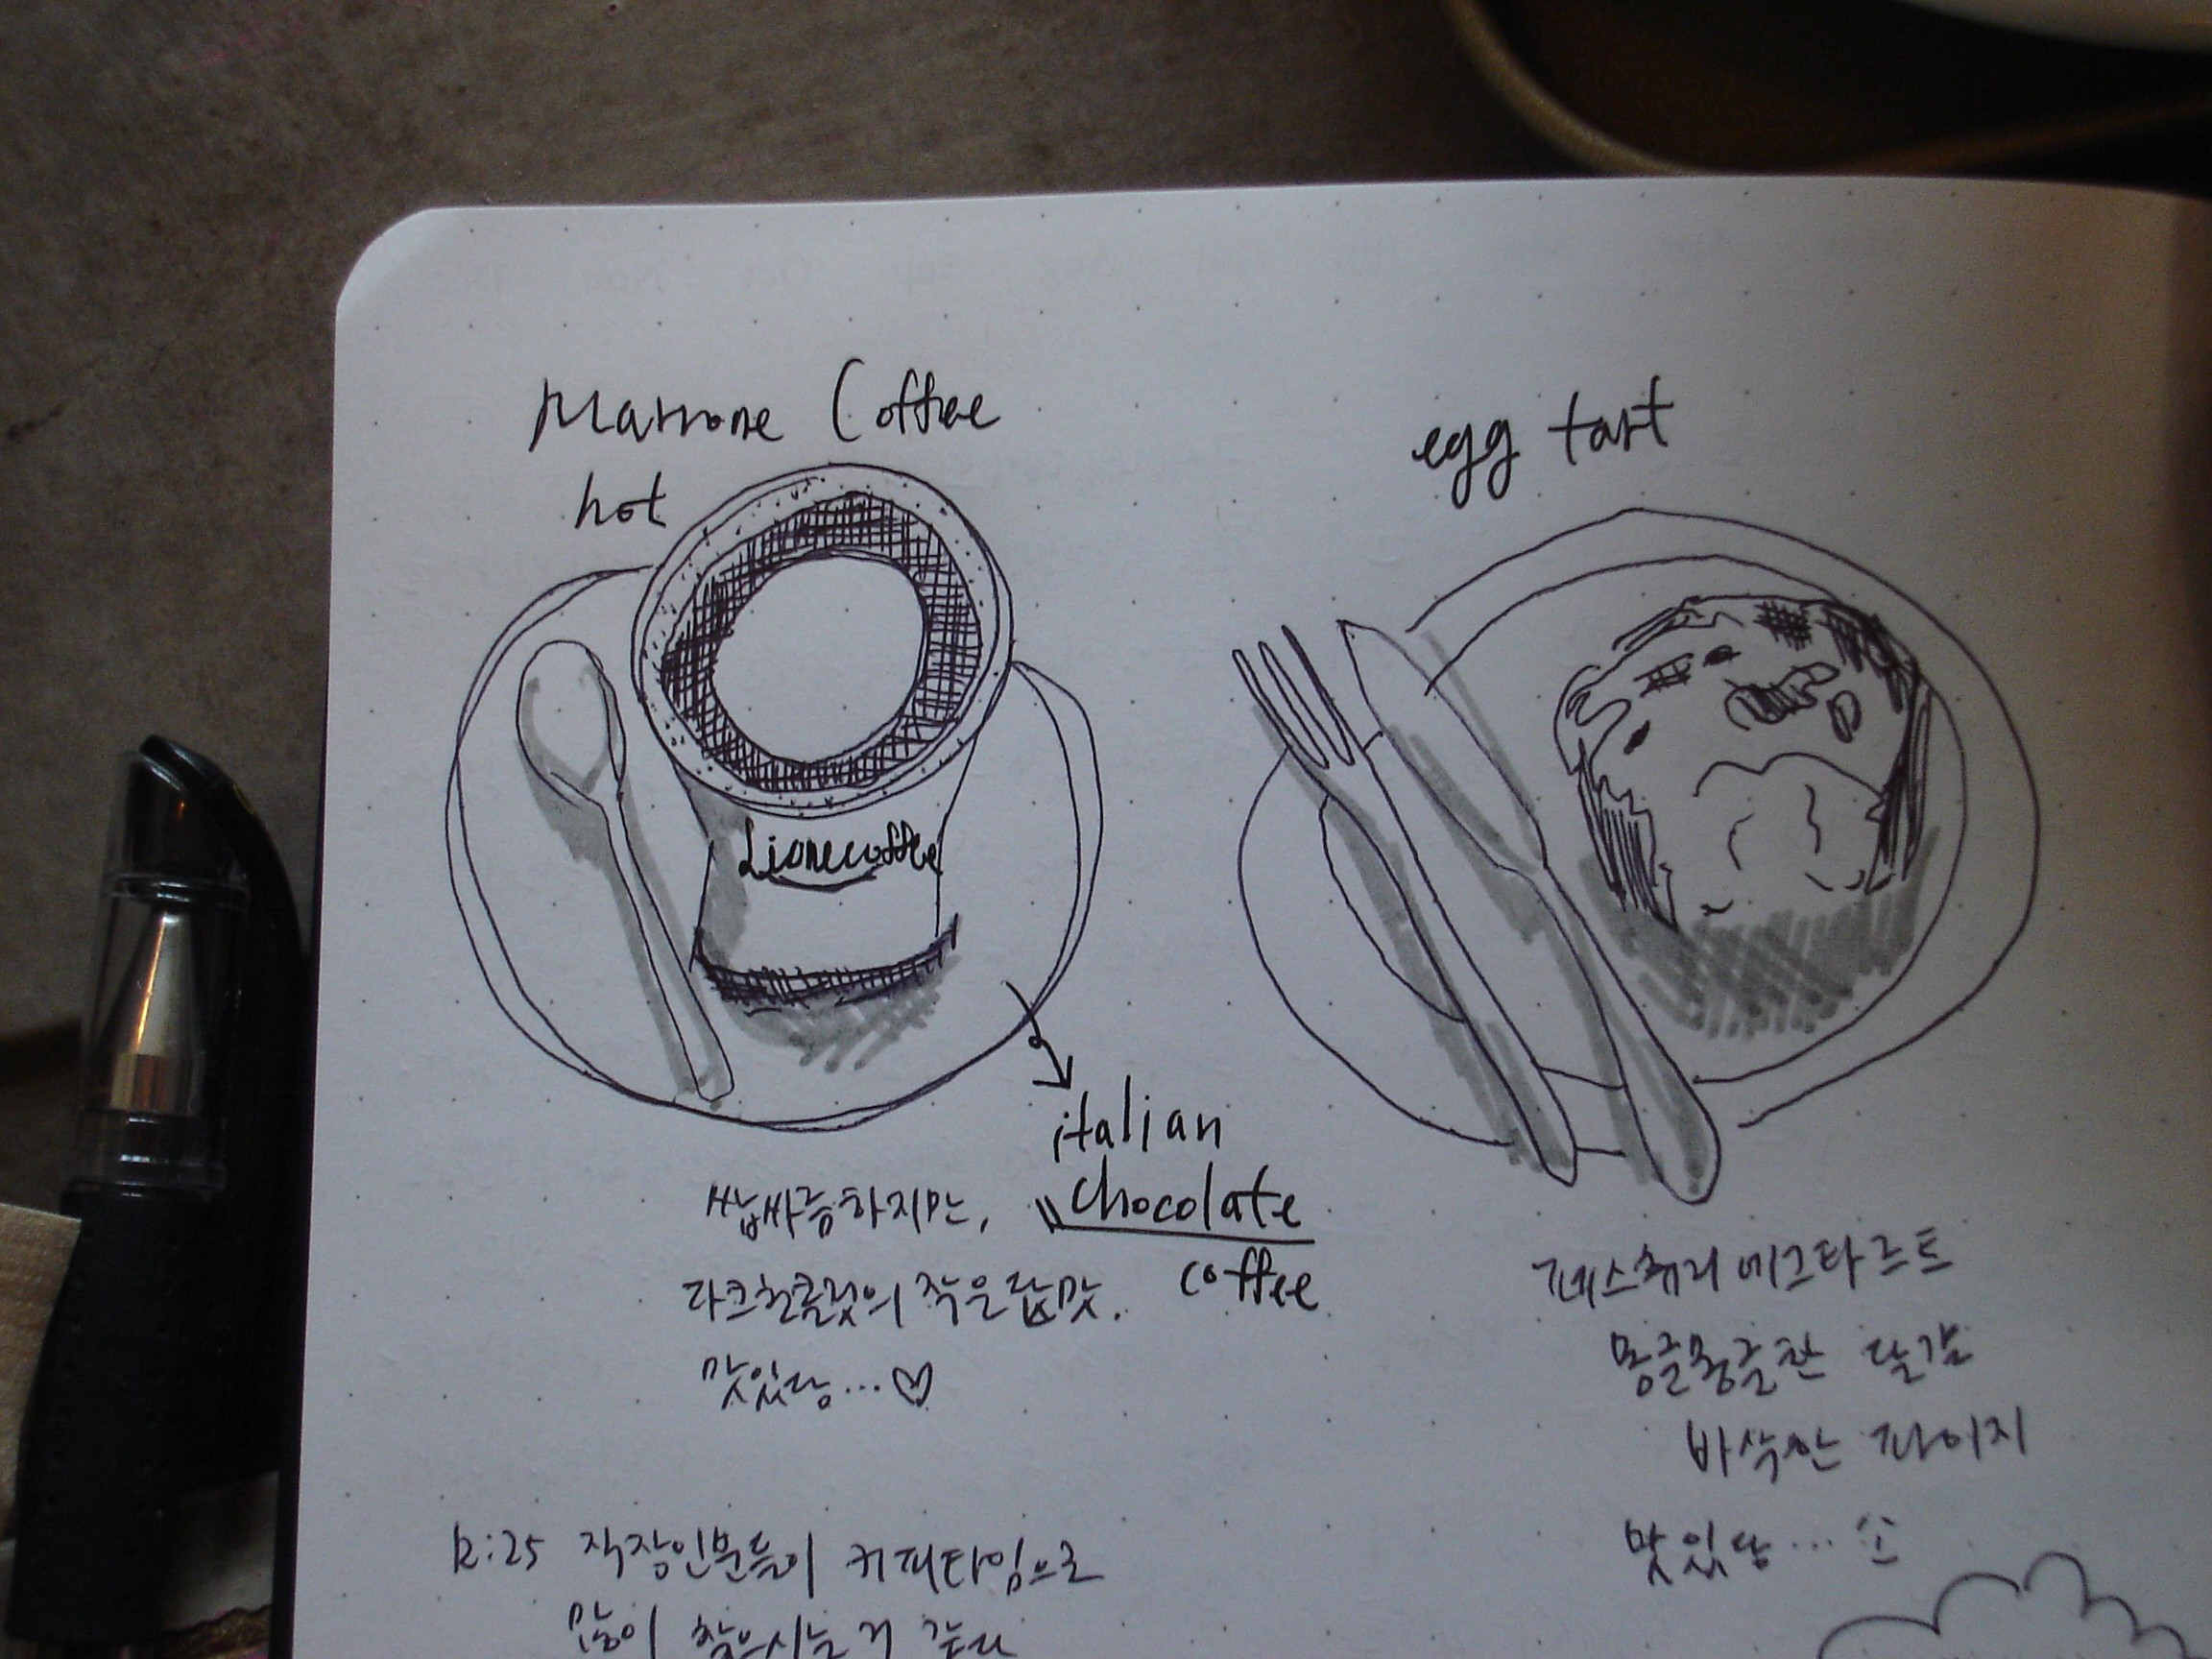 Marrone Coffee
hot
Lionecoffee
italian
chocolate
coffee
쌉싸름하지만,
다크초콜릿의 적은 맛.
맛있당...♡
egg tart
페스츄리 에그타르트
몽글몽글한 달걀
바삭한 파이지
맛있당...
12:25 직장인분들이 커피타임으로
많이 찾으시는거 같다